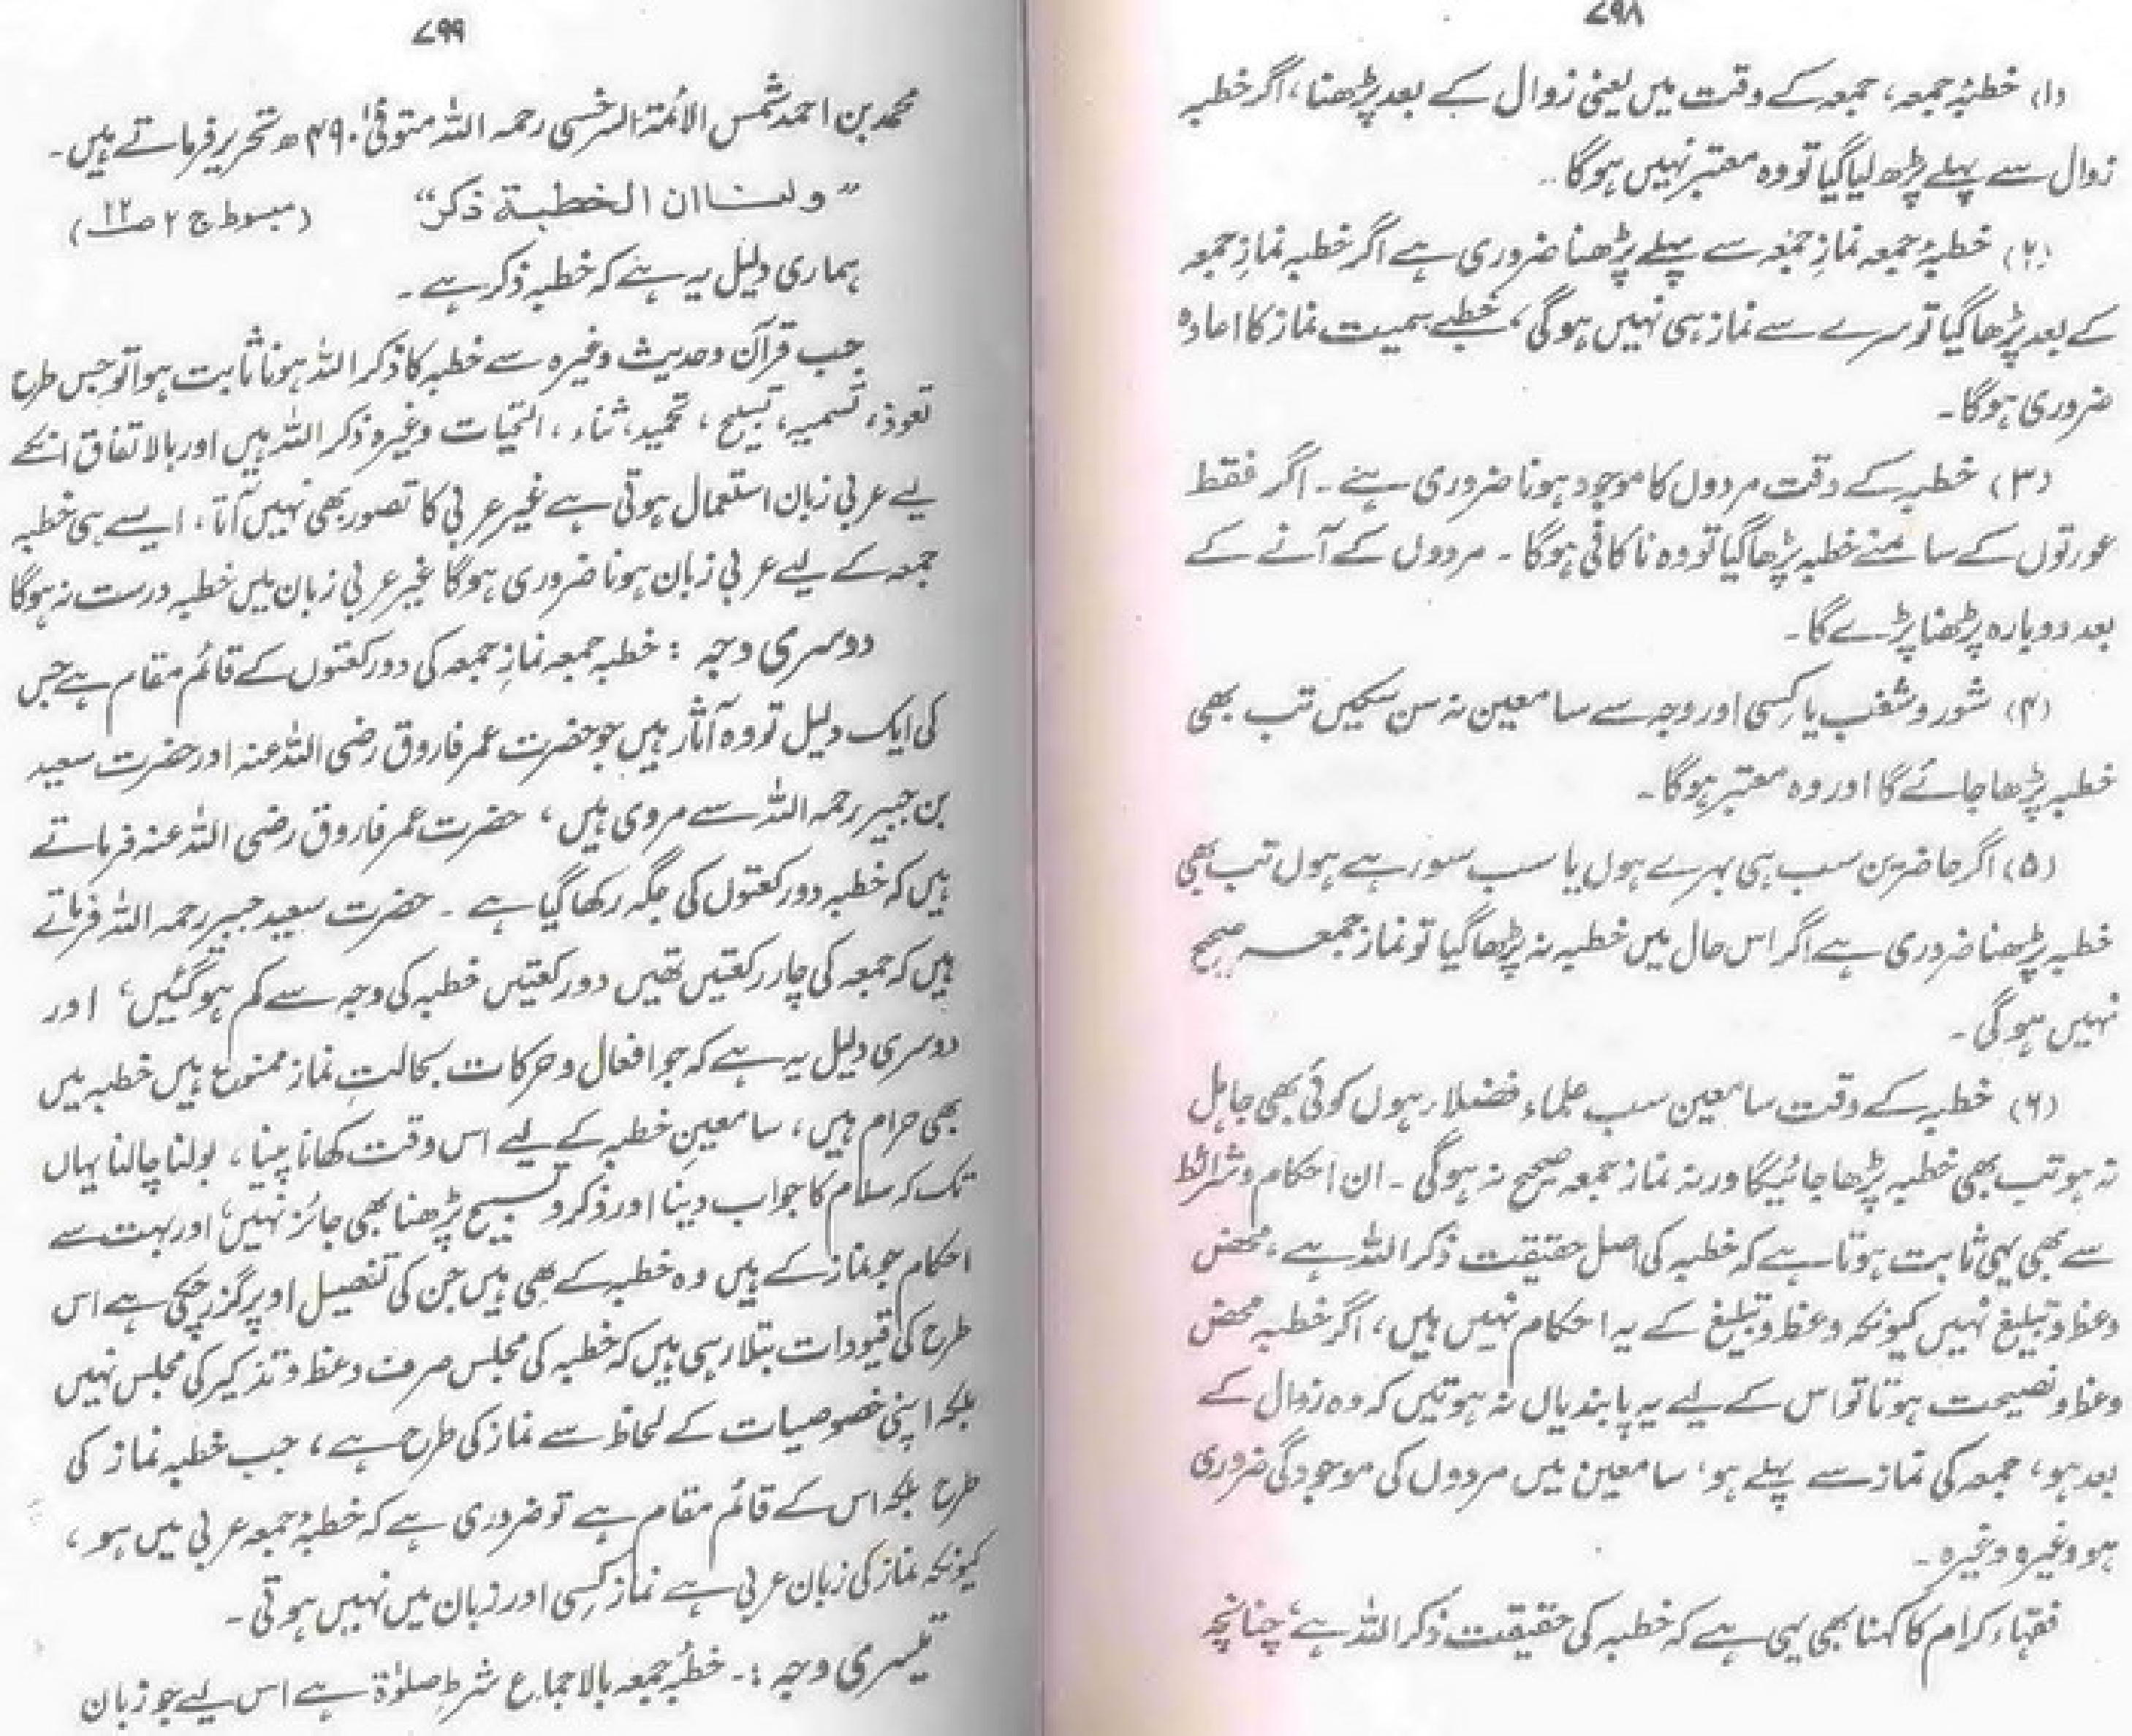 ۷۹۸
(۱) خطبۂ جمعہ، جمعہ کے وقت میں یعنی زوال کے بعد پڑھنا، اگر خطبہ
زوال سے پہلے پڑھ لیا گیا تو وہ معتبر نہیں ہوگا۔
(۲) خطبۂ جمعہ نمازِ جمعہ سے پہلے پڑھنا ضروری ہے اگر خطبہ نمازِ جمعہ
کے بعد پڑھا گیا تو سرے سے نماز ہی نہیں ہوگی، خطبے سمیت نماز کا اعادہ
ضروری ہوگا۔
(۳) خطبہ کے وقت مردوں کا موجود ہونا ضروری ہے۔ اگر فقط
عورتوں کے سامنے خطبہ پڑھا گیا تو وہ ناکافی ہوگا۔ مردوں کے آنے کے
بعد دوبارہ پڑھنا پڑے گا۔
(۴) شور و شغب یا کسی اور وجہ سے سامعین نہ سن سکیں تب بھی
خطبہ پڑھا جائے گا اور وہ معتبر ہوگا۔
(۵) اگر حاضرین سب ہی بہرے ہوں یا سب سو رہے ہوں تب بھی
خطبہ پڑھنا ضروری ہے اگر اس حال میں خطبہ نہ پڑھا گیا تو نماز جمعہ صحیح
نہیں ہوگی۔
(۶) خطبہ کے وقت سامعین سب علماء فضلاء ہوں کوئی بھی جاہل
نہ ہو تب بھی خطبہ پڑھا جائیگا ورنہ نماز جمعہ صحیح نہ ہوگی۔ ان احکام و شرائط
سے بھی یہی ثابت ہوتا ہے کہ خطبہ کی اصل حقیقت ذکر اللہ ہے، محض
وعظ و تبلیغ نہیں کیونکہ وعظ و تبلیغ کے یہ احکام نہیں ہیں، اگر خطبہ محض
وعظ و نصیحت ہوتا تو اس کے لیے یہ پابندیاں نہ ہوتیں کہ وہ زوال کے
بعد ہو، جمعہ کی نماز سے پہلے ہو، سامعین میں مردوں کی موجودگی ضروری
ہو وغیرہ وغیرہ۔
فقہاء کرام کا کہنا بھی یہی ہے کہ خطبہ کی حقیقت ذکر اللہ ہے، چنانچہ
۷۹۹
محمد بن احمد شمس الائمۃ السرخسی رحمہ اللہ متوفیٰ ۴۹۰ھ تحریر فرماتے ہیں۔
”ولنا ان الخطبة ذكر“ (مبسوط ج ۲ ص ۲۲)
ہماری دلیل یہ ہے کہ خطبہ ذکر ہے۔
جب قرآن و حدیث وغیرہ سے خطبہ کا ذکر اللہ ہونا ثابت ہوا تو جس طرح
تعوذ، تسمیہ، تسبیح، تحمید، ثناء، التحیات وغیرہ ذکر اللہ ہیں اور بالاتفاق انکے
لیے عربی زبان استعمال ہوتی ہے غیر عربی کا تصور بھی نہیں آتا، ایسے ہی خطبہ
جمعہ کے لیے عربی زبان ہونا ضروری ہوگا غیر عربی زبان میں خطبہ درست نہ ہوگا
دوسری وجہ : خطبہ جمعہ نمازِ جمعہ کی دو رکعتوں کے قائم مقام ہے جس
کی ایک دلیل تو وہ آثار ہیں جو حضرت عمر فاروق رضی اللہ عنہ اور حضرت سعید
بن جبیر رحمہ اللہ سے مروی ہیں، حضرت عمر فاروق رضی اللہ عنہ فرماتے
ہیں کہ خطبہ دو رکعتوں کی جگہ رکھا گیا ہے۔ حضرت سعید جبیر رحمہ اللہ فرماتے
ہیں کہ جمعہ کی چار رکعتیں تھیں دو رکعتیں خطبہ کی وجہ سے کم ہوگئیں، اور
دوسری دلیل یہ ہے کہ جو افعال و حرکات بحالتِ نماز ممنوع ہیں خطبہ میں
بھی حرام ہیں، سامعینِ خطبہ کے لیے اس وقت کھانا پینا، بولنا چالنا یہاں
تک کہ سلام کا جواب دینا اور ذکر و تسبیح پڑھنا بھی جائز نہیں، اور بہت سے
احکام جو نماز کے ہیں وہ خطبہ کے بھی ہیں جن کی تفصیل اوپر گزر چکی ہے اس
طرح کی قیودات بتلا رہی ہیں کہ خطبہ کی مجلس صرف وعظ و تذکیر کی مجلس نہیں
بلکہ اپنی خصوصیات کے لحاظ سے نماز کی طرح ہے، جب خطبہ نماز کی
طرح بلکہ اس کے قائم مقام ہے تو ضروری ہے کہ خطبۂ جمعہ عربی میں ہو،
کیونکہ نماز کی زبان عربی ہے نماز کسی اور زبان میں نہیں ہوتی۔
تیسری وجہ :۔ خطبۂ جمعہ بالاجماع شرطِ صلوٰۃ ہے اس لیے جو زبان